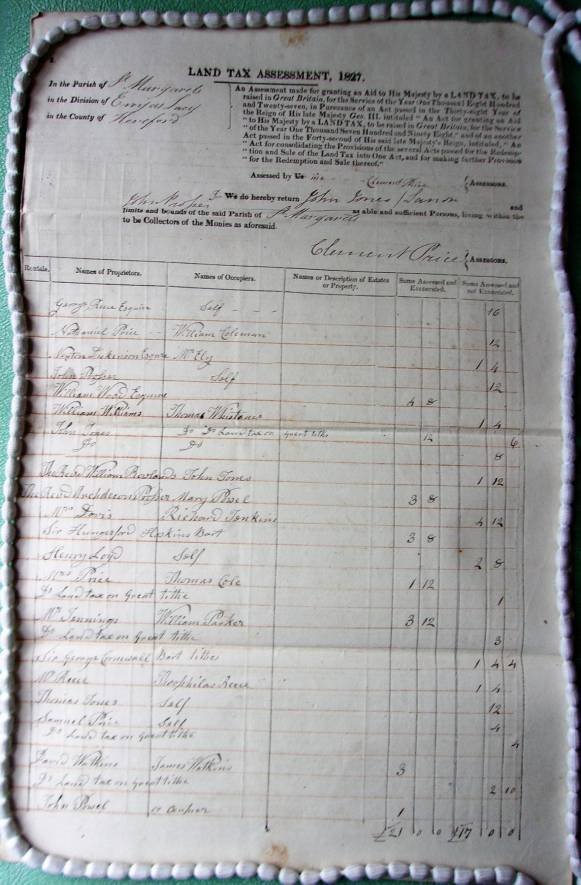 LAND TAX ASSESSMENT, 1827.
In the Parish of St Margarets
in the Division of Ewyas Lacy
in the County of Hereford
An Assessment made for granting an Aid to His Majesty by a LAND TAX, to be
raised in Great Britain, for the Service of the Year One Thousand Eight Hundred
and Twenty-seven, in Pursuance of an Act passed in the Thirty-eight Year of
the Reign of His late Majesty Geo. III. intituled "An Act for granting an Aid
"to His Majesty by a LAND TAX, to be raised in Great Britain, for the Service
"of the Year One Thousand Seven Hundred and Ninety Eight," and of another
Act passed in the Forty-second of His said late Majesty's Reign, intituled, "An
"Act for consolidating the Provisions of the several Acts passed for the Redemp-
"tion and Sale of the Land Tax into One Act, and for making further Provision
"for the Redemption and Sale thereof."
Assessed by Us Clement Price Assessors.
John Prosper & We do hereby return John Jones and
limits and bounds of the said Parish of St Margarets as able and sufficient Persons, living within the
to be Collectors of the Monies as aforesaid.
Clement Price Assessors.
Rentals. Names of Proprietors. Names of Occupiers. Names or Description of Estates or Property. Sums Assessed and Exonerated. Sums Assessed and not Exonerated.
Esquire Self 16
Nathaniel Price William Coleman 12
Dickinson Esquire Mr Ely 1 4
John Prosper Self 12
William Wood Esquire 4 8
William Williams Thomas 1 4
John Jones Do Do Land tax on great tithe 12 6
Do Do 8
The Revd William Rowlands John Jones 1 12
The Revd Archdeacon Prosser Mary Powel 3 8
Mrs Davis Richard Jenkins 4 12
Sir Hungerford Hoskins Bart 3 8
Henry Loyd Self 2 8
Mrs Price Thomas Cole 1 12
Do Land tax on Great tithe 1
Mr Jennings William Parker 3 12
Do Land tax on Great tithe 3
Sir George Cornewall Bart tithes 1 4 4
Mr Reece Theophilas Reece 1 4
Thomas Jones Self 12
Samuel Price Self 4
Do Land tax on Great tithe 4
David Watkins James Watkins 3
Do Land tax on Great tithe 2 10
John Powel 1
£21 0 0 £17 0 0